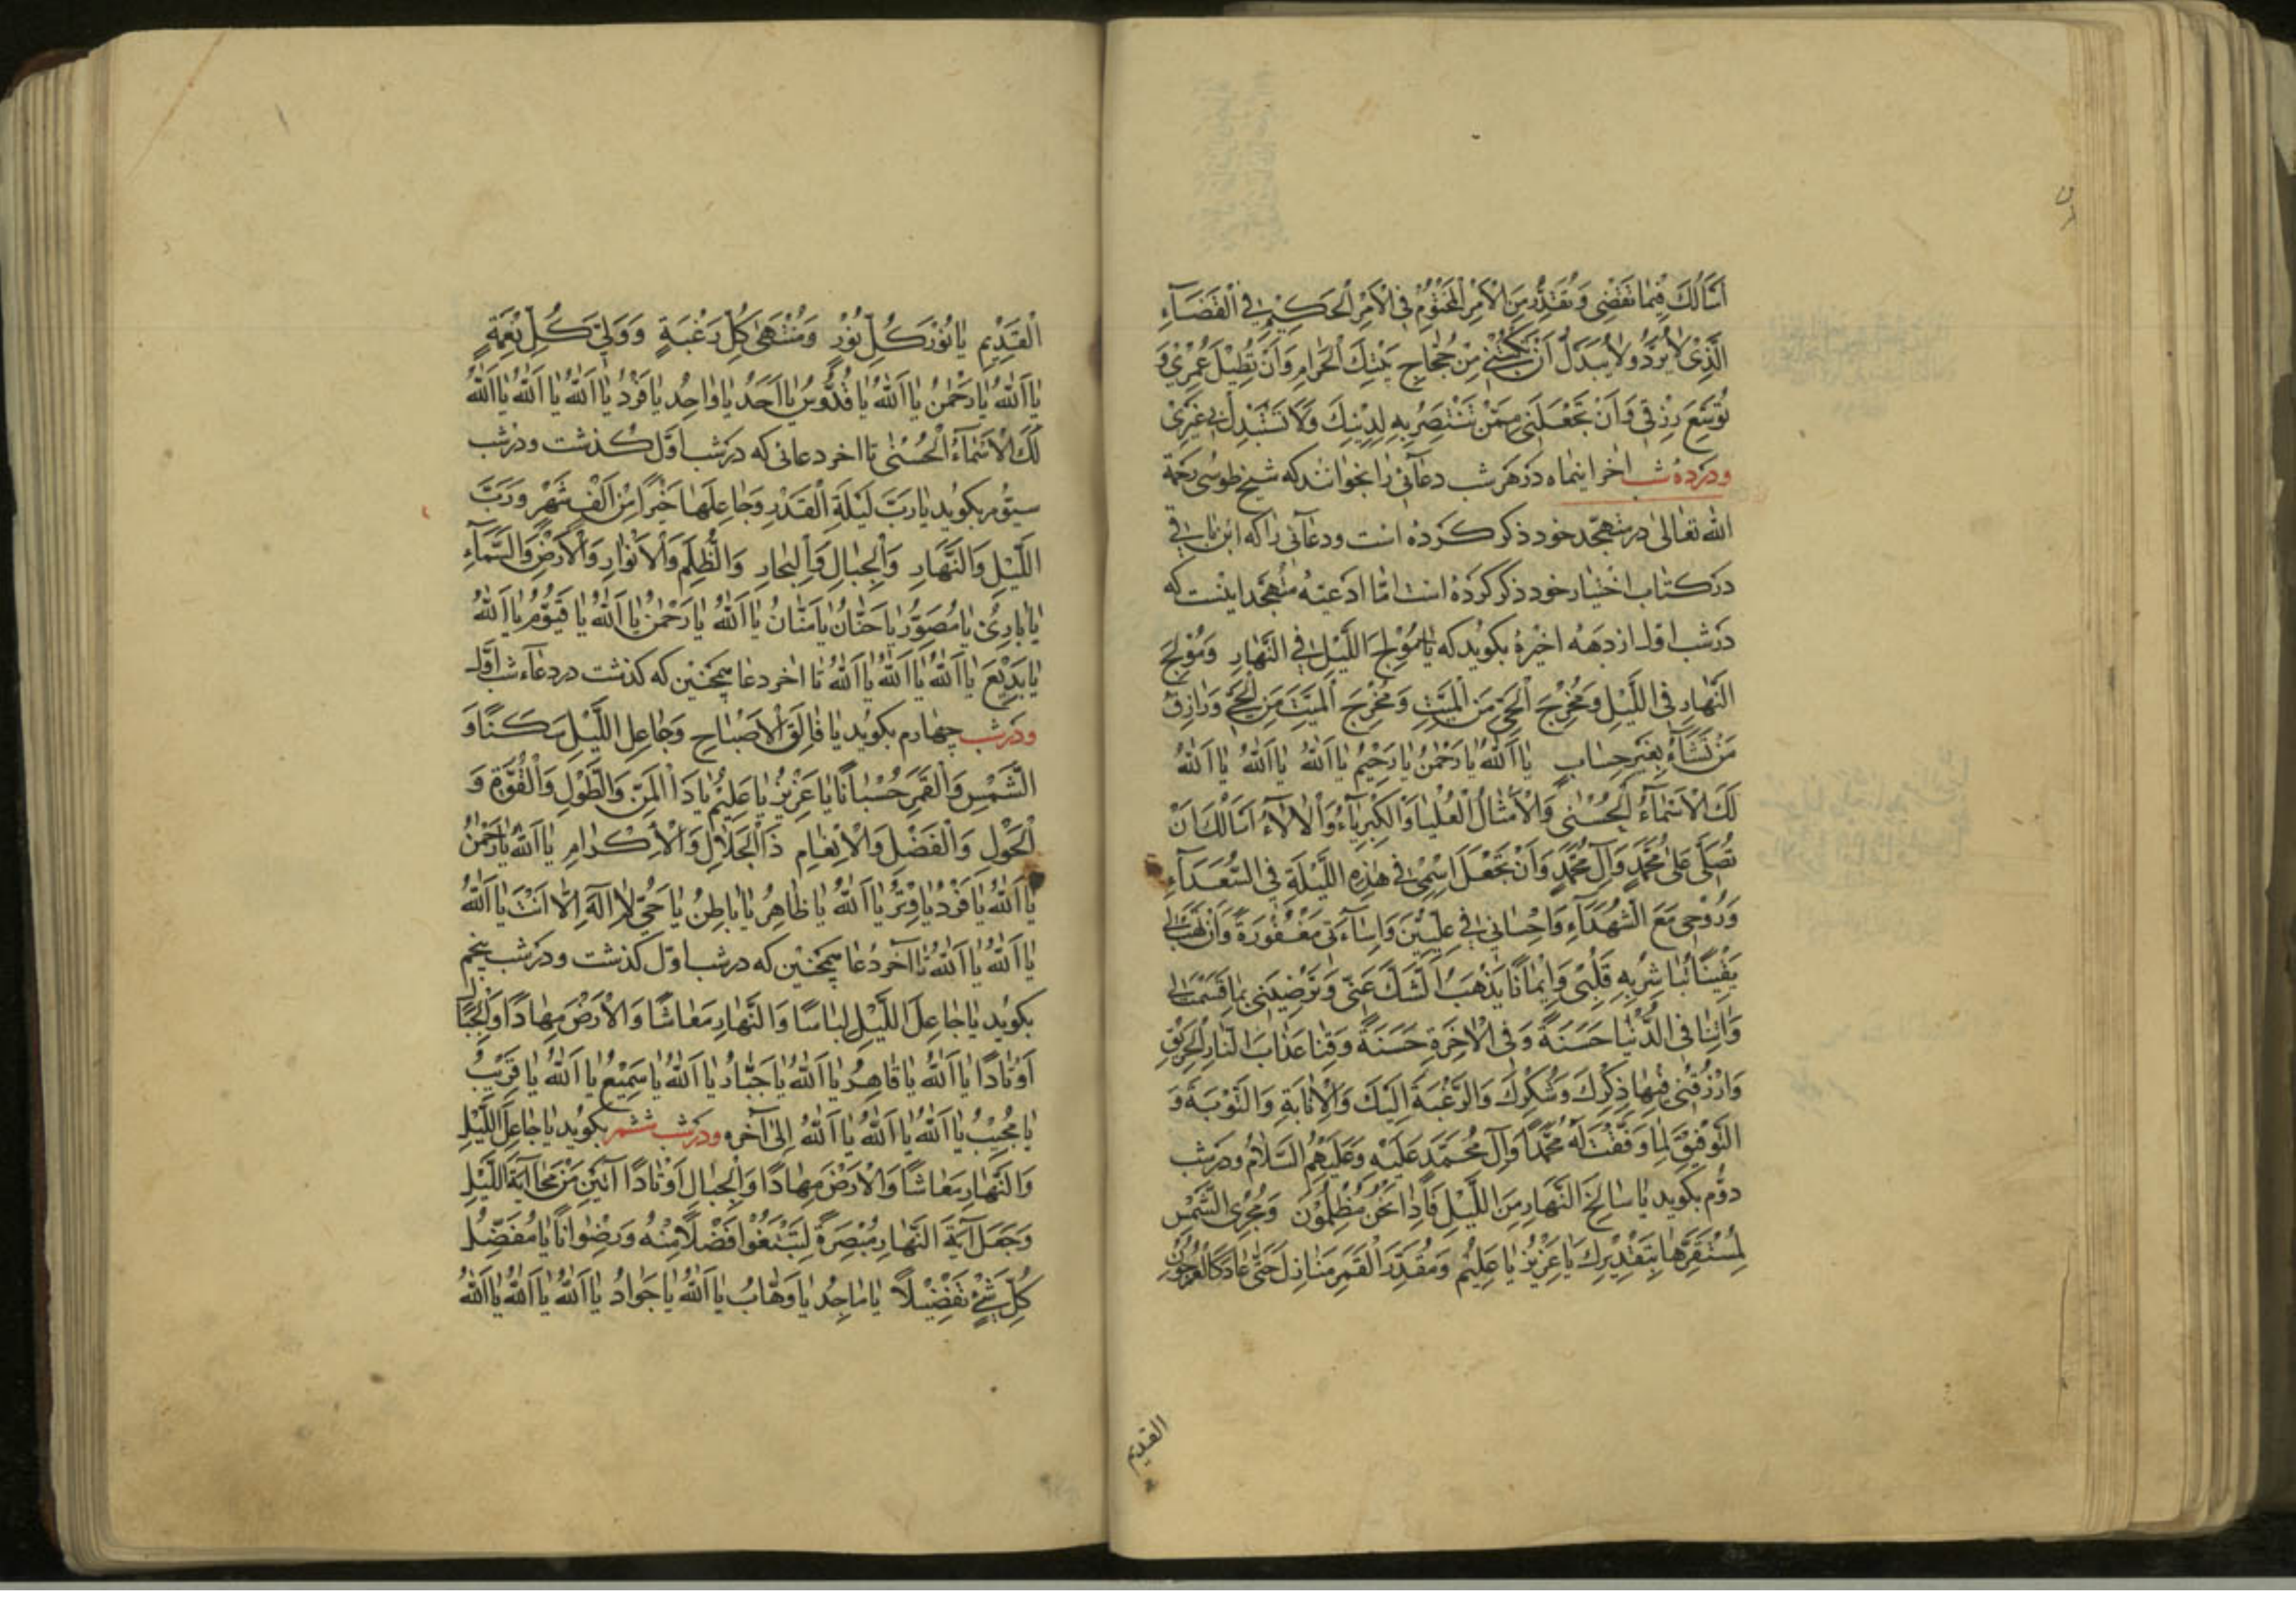 اَسْأَلُكَ فِيمَا تَقْضِي وَتُقَدِّرُ مِنَ الْاَمْرِ الْمَحْتُومِ فِي الْاَمْرِ الْحَكِيمِ فِي الْقَضَآءِ
الَّذِي لَا يُرَدُّ وَلَا يُبَدَّلُ اَنْ تَكْتُبَنِي مِنْ حُجَّاجِ بَيْتِكَ الْحَرَامِ وَاَنْ تُطِيلَ عُمْرِي وَ
تُوَسِّعَ رِزْقِي وَاَنْ تَجْعَلَنِي مِمَّنْ تَنْتَصِرُ بِهِ لِدِينِكَ وَلَا تَسْتَبْدِلْ بِي غَيْرِي
ودر ده شب اخر اینماه در هر شب دعآئی را بخوانند که شیخ طوسی رحمة
الله تعالی در متهجّد خود ذکر کرده است ودعآئی را که ابن باقی
در کتاب اختیار خود ذکر کرده است امّا ادعیهٔ متهجّد اینست که
در شب اول از دهه اخیره بکوید که یَا مُولِجَ اللَّیْلِ فِي النَّهَارِ وَمُولِجَ
النَّهَارِ فِي اللَّيْلِ وَمُخْرِجَ الْحَيِّ مِنَ الْمَيِّتِ وَمُخْرِجَ الْمَيِّتِ مِنَ الْحَيِّ وَرَازِقَ
مَنْ تَشَآءُ بِغَيْرِ حِسَابٍ يَا اَللّٰهُ يَا رَحْمٰنُ يَا رَحِيمُ يَا اَللّٰهُ يَا اَللّٰهُ يَا اَللّٰهُ
لَكَ الْاَسْمَآءُ الْحُسْنٰى وَالْاَمْثَالُ الْعُلْيَا وَالْكِبْرِيَآءُ وَالْاٰلَآءُ اَسْأَلُكَ اَنْ
تُصَلِّيَ عَلٰى مُحَمَّدٍ وَآلِ مُحَمَّدٍ وَاَنْ تَجْعَلَ اسْمِي فِي هٰذِهِ اللَّيْلَةِ فِي السُّعَدَآءِ
وَرُوحِي مَعَ الشُّهَدَآءِ وَاِحْسَانِي فِي عِلِّيِّينَ وَاِسَآءَتِي مَغْفُورَةً وَاَنْ تَهَبَ لِي
يَقِينًا تُبَاشِرُ بِهِ قَلْبِي وَاِيمَانًا يَذْهَبُ الشَّكَّ عَنِّي وَتُرْضِيَنِي بِمَا قَسَمْتَ لِي
وَآتِنَا فِي الدُّنْيَا حَسَنَةً وَفِي الْاٰخِرَةِ حَسَنَةً وَقِنَا عَذَابَ النَّارِ الْحَرِيقِ
وَارْزُقْنِي فِيهَا ذِكْرَكَ وَشُكْرَكَ وَالرَّغْبَةَ اِلَيْكَ وَالْاِنَابَةِ وَالتَّوْبَةَ وَ
التَّوْفِيقَ لِمَا وَفَّقْتَ لَهُ مُحَمَّدًا وَآلَ مُحَمَّدٍ عَلَيْهِ وَعَلَيْهِمُ السَّلَامُ ودر شب
دوّم بکوید یَا سَالِخَ النَّهَارِ مِنَ اللَّيْلِ فَاِذَا نَحْنُ مُظْلِمُونَ وَمُجْرِيَ الشَّمْسِ
لِمُسْتَقَرِّهَا بِتَقْدِيرِكَ يَا عَزِيزُ يَا عَلِيمُ وَمُقَدِّرَ الْقَمَرِ مَنَازِلَ حَتّٰى عَادَ كَالْعُرْجُونِ
القدیم
الْقَدِيمِ يَا نُورَ كُلِّ نُورٍ وَمُنْتَهٰى كُلِّ رَغْبَةٍ وَوَلِيَّ كُلِّ نِعْمَةٍ
يَا اَللّٰهُ يَا رَحْمٰنُ يَا اَللّٰهُ يَا قُدُّوسُ يَا اَحَدُ يَا وَاحِدُ يَا فَرْدُ يَا اَللّٰهُ يَا اَللّٰهُ يَا اَللّٰهُ
لَكَ الْاَسْمَآءُ الْحُسْنٰى تا اخر دعائی که در شب اوّل کذشت ودر شب
سیّوم بکوید یَا رَبَّ لَيْلَةِ الْقَدْرِ وَجَاعِلَهَا خَيْرًا مِنْ اَلْفِ شَهْرٍ وَرَبَّ
اللَّيْلِ وَالنَّهَارِ وَالْجِبَالِ وَالْبِحَارِ وَالظُّلَمِ وَالْاَنْوَارِ وَالْاَرْضِ وَالسَّمَآءِ
يَا بَارِئُ يَا مُصَوِّرُ يَا حَنَّانُ يَا مَنَّانُ يَا اَللّٰهُ يَا رَحْمٰنُ يَا اَللّٰهُ يَا قَيُّومُ يَا اَللّٰهُ
يَا بَدِيعَ يَا اَللّٰهُ يَا اَللّٰهُ يَا اَللّٰهُ تا اخر دعا همچنین که کذشت در دعآء شب اوّل
ودر شب چهارم بکوید یَا فَالِقَ الْاَصْبَاحِ وَجَاعِلَ اللَّيْلِ سَكَنًا وَ
الشَّمْسِ وَالْقَمَرِ حُسْبَانًا يَا عَزِيزُ يَا عَلِيمُ يَا ذَا الْمَنِّ وَالطَّوْلِ وَالْقُوَّةِ وَ
الْحَوْلِ وَالْفَضْلِ وَالْاِنْعَامِ ذَا الْجَلَالِ وَالْاِكْرَامِ يَا اَللّٰهُ يَا رَحْمٰنُ
يَا اَللّٰهُ يَا فَرْدُ يَا وِتْرُ يَا اَللّٰهُ يَا ظَاهِرُ يَا بَاطِنُ يَا حَيُّ لَا اِلٰهَ اِلَّا اَنْتَ يَا اَللّٰهُ
يَا اَللّٰهُ يَا اَللّٰهُ تا آخر دعا همچنین که در شب اوّل کذشت ودر شب پنجم
بکوید یَا جَاعِلَ اللَّيْلِ لِبَاسًا وَالنَّهَارِ مَعَاشًا وَالْاَرْضِ مِهَادًا وَالْجِبَالِ
اَوْتَادًا يَا اَللّٰهُ يَا قَاهِرُ يَا اَللّٰهُ يَا جَبَّارُ يَا اَللّٰهُ يَا سَمِيعُ يَا اَللّٰهُ يَا قَرِيبُ
يَا مُجِيبُ يَا اَللّٰهُ يَا اَللّٰهُ يَا اَللّٰهُ اِلٰى آخره ودر شب ششم بکوید یَا جَاعِلَ اللَّيْلِ
وَالنَّهَارِ مَعَاشًا وَالْاَرْضِ مِهَادًا وَالْجِبَالِ اَوْتَادًا آيَتَيْنِ مَنْ مَحَا آيَةَ اللَّيْلِ
وَجَعَلَ آيَةَ النَّهَارِ مُبْصِرَةً لِتَبْتَغُوا فَضْلًا مِنْهُ وَرِضْوَانًا يَا مُفَضِّلَ
كُلِّ شَيْءٍ تَفْضِيلًا يَا مَاجِدُ يَا وَهَّابُ يَا اَللّٰهُ يَا جَوَادُ يَا اَللّٰهُ يَا اَللّٰهُ يَا اَللّٰهُ